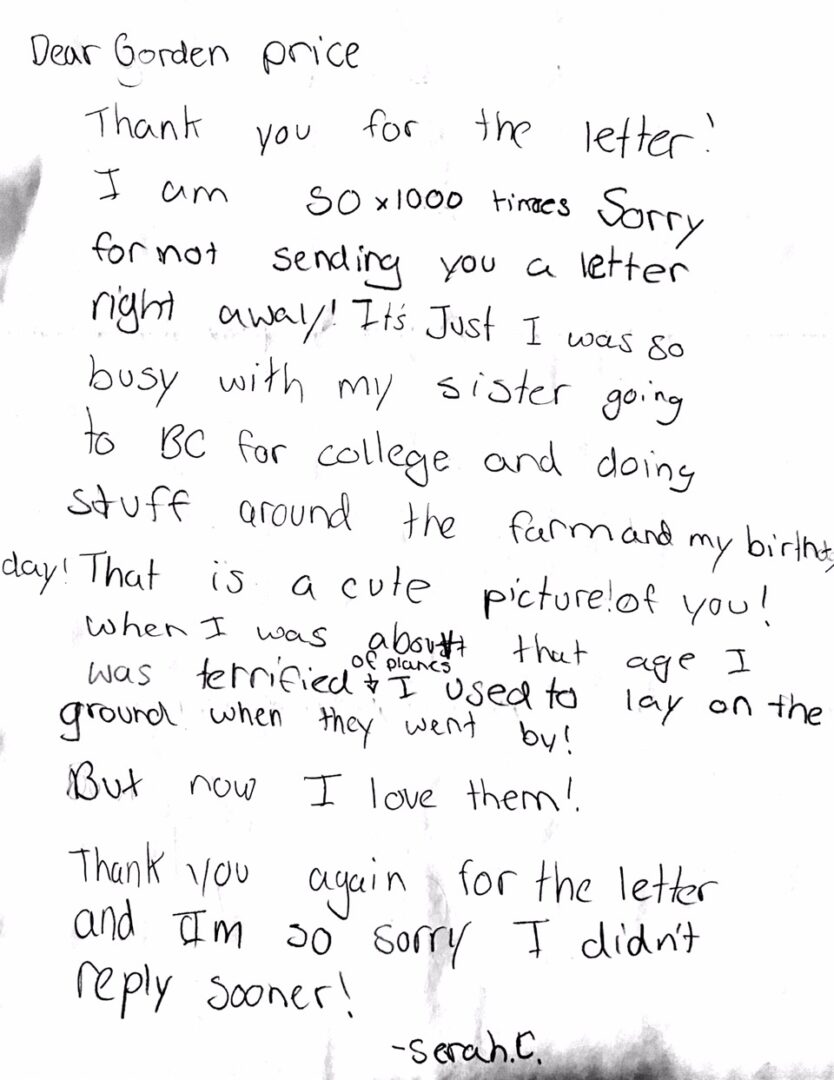 Dear Gorden price
Thank you for the letter!
I am SO x1000 times Sorry
for not sending you a letter
right away! It's Just I was so
busy with my sister going
to BC for college and doing
stuff around the farm and my birth
day! That is a cute picture! of you!
when I was about that age I
was terrified of planes & I used to lay on the
ground when they went by!
But now I love them!
Thank you again for the letter
and I'm so sorry I didn't
reply sooner!
-Serah.C.